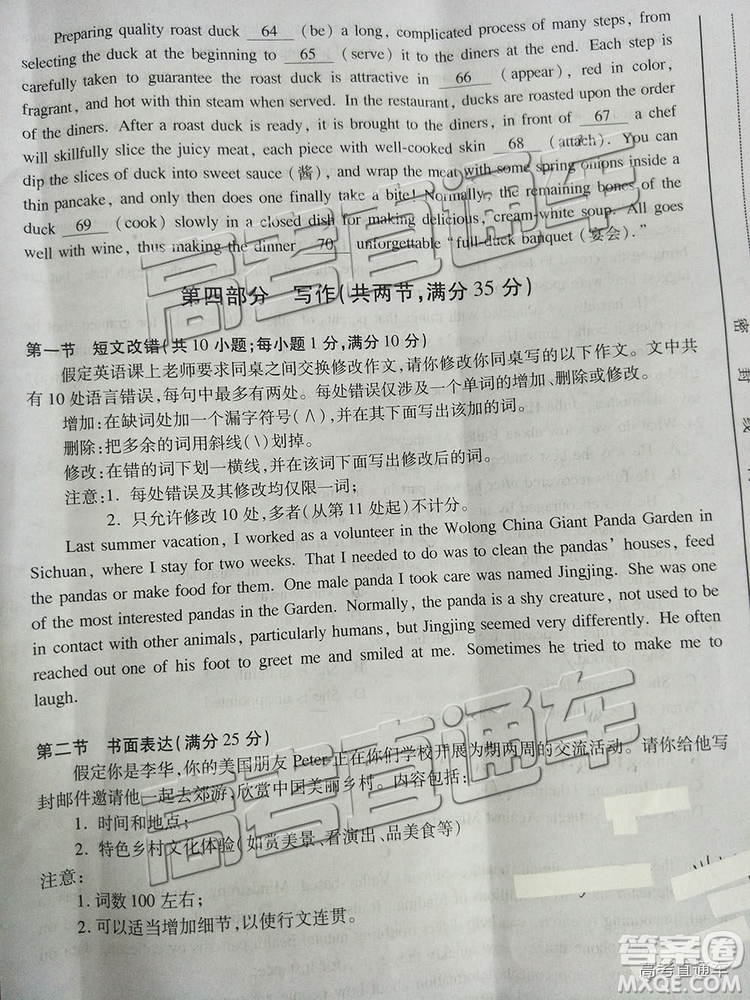 Preparing quality roast duck 64 (be) a long, complicated process of many steps, from
selecting the duck at the beginning to 65 (serve) it to the diners at the end. Each step is
carefully taken to guarantee the roast duck is attractive in 66 (appear), red in color,
fragrant, and hot with thin steam when served. In the restaurant, ducks are roasted upon the order
of the diners. After a roast duck is ready, it is brought to the diners, in front of 67 a chef
will skillfully slice the juicy meat, each piece with well-cooked skin 68 (attach). You can
dip the slices of duck into sweet sauce (酱), and wrap the meat with some spring onions inside a
thin pancake, and only then does one finally take a bite! Normally, the remaining bones of the
duck 69 (cook) slowly in a closed dish for making delicious, cream-white soup. All goes
well with wine, thus making the dinner 70 unforgettable “full-duck banquet (宴会).”
第四部分 写作(共两节,满分35分)
第一节 短文改错(共10小题;每小题1分,满分10分)
假定英语课上老师要求同桌之间交换修改作文,请你修改你同桌写的以下作文。文中共
有10处语言错误,每句中最多有两处。每处错误仅涉及一个单词的增加、删除或修改。
增加:在缺词处加一个漏字符号(∧),并在其下面写出该加的词。
删除:把多余的词用斜线(\)划掉。
修改:在错的词下划一横线,并在该词下面写出修改后的词。
注意:1. 每处错误及其修改均仅限一词;
2. 只允许修改10处,多者(从第11处起)不计分。
Last summer vacation, I worked as a volunteer in the Wolong China Giant Panda Garden in
Sichuan, where I stay for two weeks. That I needed to do was to clean the pandas’ houses, feed
the pandas or make food for them. One male panda I took care was named Jingjing. She was one
of the most interested pandas in the Garden. Normally, the panda is a shy creature, not used to be
in contact with other animals, particularly humans, but Jingjing seemed very differently. He often
reached out one of his foot to greet me and smiled at me. Sometimes he tried to make me to
laugh.
第二节 书面表达(满分25分)
假定你是李华,你的美国朋友Peter正在你们学校开展为期两周的交流活动。请你给他写
封邮件邀请他一起去郊游,欣赏中国美丽乡村。内容包括:
1. 时间和地点;
2. 特色乡村文化体验(如赏美景、看演出、品美食等)
注意:
1. 词数100左右;
2. 可以适当增加细节,以使行文连贯。
密
封
高考直通车
高考直通车
答案圈
高考直通车
MXQE.COM